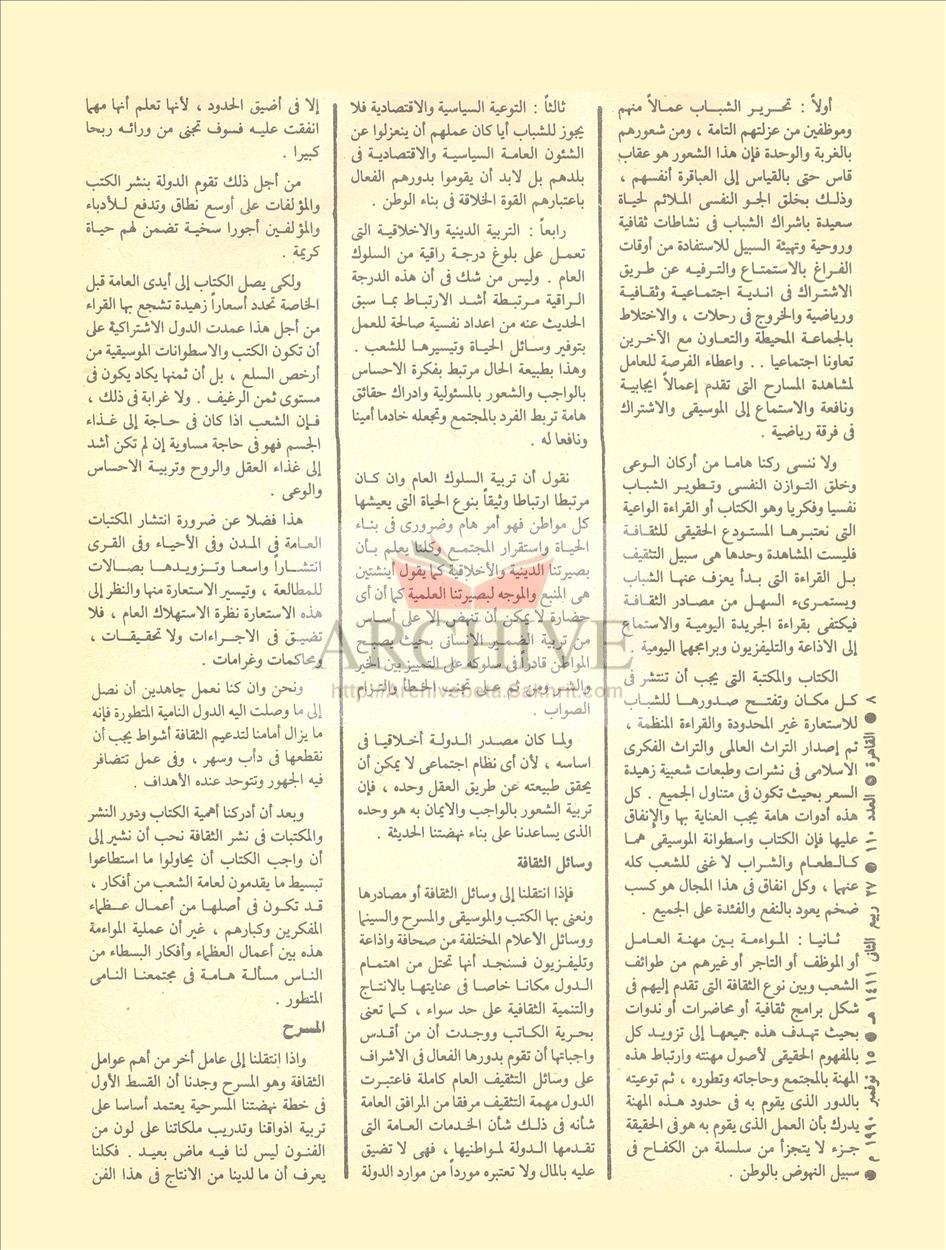 أولاً : تحرير الشباب عمالاً منهم
وموظفين من عزلتهم التامة ، ومن شعورهم
بالغربة والوحدة فإن هذا الشعور هو عقاب
قاس حتى بالقياس إلى العباقرة أنفسهم ،
وذلك بخلق الجو النفسى الملائم لحياة
سعيدة باشراك الشباب فى نشاطات ثقافية
وروحية وتهيئة السبيل للاستفادة من أوقات
الفراغ بالاستمتاع والترفيه عن طريق
الاشتراك فى اندية اجتماعية وثقافية
ورياضية والخروج فى رحلات ، والاختلاط
بالجماعة المحيطة والتعاون مع الآخرين
تعاونا اجتماعيا . . واعطاء الفرصة للعامل
لمشاهدة المسارح التى تقدم إعمالاً ايجابية
ونافعة والاستماع إلى الموسيقى والاشتراك
فى فرقة رياضية .
ولا ننسى ركنا هاما من أركان الوعى
وخلق التوازن النفسى وتطوير الشباب
نفسيا وفكريا وهو الكتاب أو القراءة الواعية
التى نعتبرها المستودع الحقيقى للثقافة
فليست المشاهدة وحدها هى سبيل التثقيف
بل القراءة التى بدأ يعزف عنها الشباب
ويستمرىء السهل من مصادر الثقافة
فيكتفى بقراءة الجريدة اليومية والاستماع
إلى الاذاعة والتليفزيون وبرامجهما اليومية .
الكتاب والمكتبة التى يجب أن تنتشر فى
كل مكان وتفتح صدورها للشباب
للاستعارة غير المحدودة والقراءة المنظمة ،
ثم إصدار التراث العالمى والتراث الفكرى
الاسلامى فى نشرات وطبعات شعبية زهيدة
السعر بحيث تكون فى متناول الجميع . كل
هذه أدوات هامة يجب العناية بها والإنفاق
عليها فإن الكتاب واسطوانة الموسيقى هما
كالطعام والشراب لا غنى للشعب كله
عنهما ، وكل انفاق فى هذا المجال هو كسب
ضخم يعود بالنفع والفئدة على الجميع .
ثانيا : المواءمة بين مهنة العامل
أو الموظف أو التاجر أو غيرهم من طوائف
الشعب وبين نوع الثقافة التى تقدم إليهم فى
شكل برامج ثقافية أو محاضرات أو ندوات
بحيث تهدف هذه جميعها إلى تزويد كل
بالمفهوم الحقيقى لأصول مهنته وارتباط هذه
المهنة بالمجتمع وحاجاته وتطوره ، ثم توعيته
بالدور الذى يقوم به فى حدود هذه المهنة
يدرك بأن العمل الذى يقوم به هو فى الحقيقة
جزء لا يتجزأ من سلسلة من الكفاح فى
سبيل النهوض بالوطن .
ثالثاً : التوعية السياسية والاقتصادية فلا
يجوز للشباب أيا كان عملهم أن ينعزلوا عن
الشئون العامة السياسية والاقتصادية فى
بلدهم بل لابد أن يقوموا بدورهم الفعال
باعتبارهم القوة الخلاقة فى بناء الوطن .
رابعاً : التربية الدينية والاخلاقية التى
تعمل على بلوغ درجة راقية من السلوك
العام . وليس من شك فى أن هذه الدرجة
الراقية مرتبطة أشد الارتباط بما سبق
الحديث عنه من اعداد نفسية صالحة للعمل
بتوفير وسائل الحياة وتيسيرها للشعب .
وهذا بطبيعة الحال مرتبط بفكرة الاحساس
بالواجب والشعور بالمسئولية وادراك حقائق
هامة تربط الفرد بالمجتمع وتجعله خادما أمينا
ونافعا له .
نقول أن تربية السلوك العام وان كان
مرتبطا ارتباطا وثيقاً بنوع الحياة التى يعيشها
كل مواطن فهو أمر هام وضرورى فى بناء
الحياة واستقرار المجتمع وكلنا يعلم بأن
بصيرتنا الدينية والأخلاقية كما يقول أينشتين
هى المنبع والموجه لبصيرتنا العلمية كما أن أى
حضارة لا يمكن أن تنهض إلا على أساس
من تربية الضمير الانسانى بحيث يصبح
المواطن قادرا فى سلوكه على التمييز بين الخير
والشر ومن ثم على تجنب الخطأ والتزام
الصواب .
ولما كان مصدر الدولة أخلاقيا فى
اساسه ، لأن أى نظام اجتماعى لا يمكن أن
يحقق طبيعته عن طريق العقل وحده ، فإن
تربية الشعور بالواجب والايمان به هو وحده
الذى يساعدنا على بناء نهضتنا الحديثة .
وسائل الثقافة
فإذا انتقلنا إلى وسائل الثقافة أو مصادرها
ونعنى بها الكتب والموسيقى والمسرح والسينما
ووسائل الاعلام المختلفة من صحافة واذاعة
وتليفزيون فسنجد أنها تحتل من اهتمام
الدول مكانا خاصا فى عنايتها بالانتاج
والتنمية الثقافية على حد سواء ، كما تعنى
بحرية الكاتب ووجدت أن من أقدس
واجباتها أن تقوم بدورها الفعال فى الاشراف
على وسائل التثقيف العام كاملة فاعتبرت
الدول مهمة التثقيف مرفقا من المرافق العامة
شأنه فى ذلك شأن الخدمات العامة التى
تقدمها الدولة لمواطنيها ، فهى لا تضيق
عليه بالمال ولا تعتبره مورداً من موارد الدولة
إلا فى أضيق الحدود ، لأنها تعلم أنها مهما
انفقت عليه فسوف تجنى من ورائه ربحا
كبيرا .
من أجل ذلك تقوم الدولة بنشر الكتب
والمؤلفات على أوسع نطاق وتدفع للأدباء
والمؤلفين أجورا سخية تضمن لهم حياة
كريمة .
ولكى يصل الكتاب إلى أيدى العامة قبل
الخاصة تحدد أسعاراً زهيدة تشجع بها القراء
من أجل هذا عمدت الدول الاشتراكية على
أن تكون الكتب والاسطوانات الموسيقية من
أرخص السلع ، بل أن ثمنها يكاد يكون فى
مستوى ثمن الرغيف . ولا غرابة فى ذلك ،
فإن الشعب اذا كان فى حاجة إلى غذاء
الجسم فهو فى حاجة مساوية إن لم تكن أشد
إلى غذاء العقل والروح وتربية الاحساس
والوعى .
هذا فضلا عن ضرورة انتشار المكتبات
العامة فى المدن وفى الأحياء وفى القرى
انتشاراً واسعا وتزويدها بصالات
للمطالعة ، وتيسير الاستعارة منها والنظر إلى
هذه الاستعارة نظرة الاستهلاك العام ، فلا
تضييق فى الاجراءات ولا تحقيقات ،
ومحاكمات وغرامات .
ونحن وان كنا نعمل جاهدين أن نصل
إلى ما وصلت اليه الدول النامية المتطورة فإنه
ما يزال أمامنا لتدعيم الثقافة أشواط يجب أن
نقطعها فى دأب وسهر ، وفى عمل تتضافر
فيه الجهور وتتوحد عنده الأهداف.
وبعد أن أدركنا أهمية الكتاب ودور النشر
والمكتبات فى نشر الثقافة نحب أن نشير إلى
أن واجب الكتاب أن يحاولوا ما استطاعوا
تبسيط ما يقدمون لعامة الشعب من أفكار ،
قد تكون فى أصلها من أعمال عظماء
المفكرين وكبارهم ، غير أن عملية المواءمة
هذه بين أعمال العظماء وأفكار البسطاء من
الناس مسألة هامة فى مجتمعنا النامى
المتطور .
المسرح
واذا انتقلنا إلى عامل أخر من أهم عوامل
الثقافة وهو المسرح وجدنا أن القسط الأول
فى خطة نهضتنا المسرحية يعتمد أساسا على
تربية اذواقنا وتدريب ملكاتنا على لون من
الفنون ليس لنا فيه ماض بعيد . فكلنا
يعرف أن ما لدينا من الانتاج فى هذا الفن
٨ ● القاهرة ● العدد ١١٠ ● ٢٧ ربيع الثانى ١٤١١ هـ ● ١٥ نوفمبر ١٩٩٠ م ●
ARCHIVE
http://archivebeta.Sakhrit.com